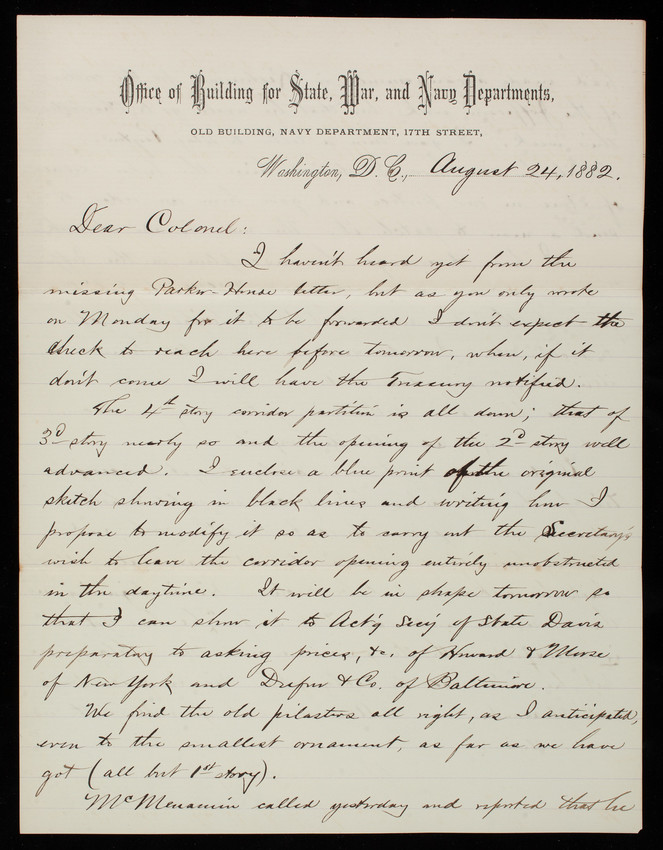 Office of Building for State, War, and Navy Departments,
OLD BUILDING, NAVY DEPARTMENT, 17TH STREET,
Washington, D. C., August 24, 1882.
Dear Colonel:
I haven't heard yet from the
missing Parker House letter, but as you only wrote
on Monday for it to be forwarded I don't expect the
check to reach here before tomorrow, when, if it
don't come I will have the Treasury notified.
The 4th story corridor partition is all down; that of
3d story nearly so and the opening of the 2d story well
advanced. I enclose a blue print of the original
sketch showing in black lines and writing how I
propose to modify it so as to carry out the Secretary's
wish to leave the corridor opening entirely unobstructed
in the daytime. It will be in shape tomorrow so
that I can show it to Act'g Sec'y of State Davis
preparatory to asking prices, &c. of Howard & Morse
of New York and Dufur & Co. of Baltimore.
We find the old pilasters all right, as I anticipated,
even to the smallest ornament, as far as we have
got (all but 1st story).
McMenamin called yesterday and reported that he